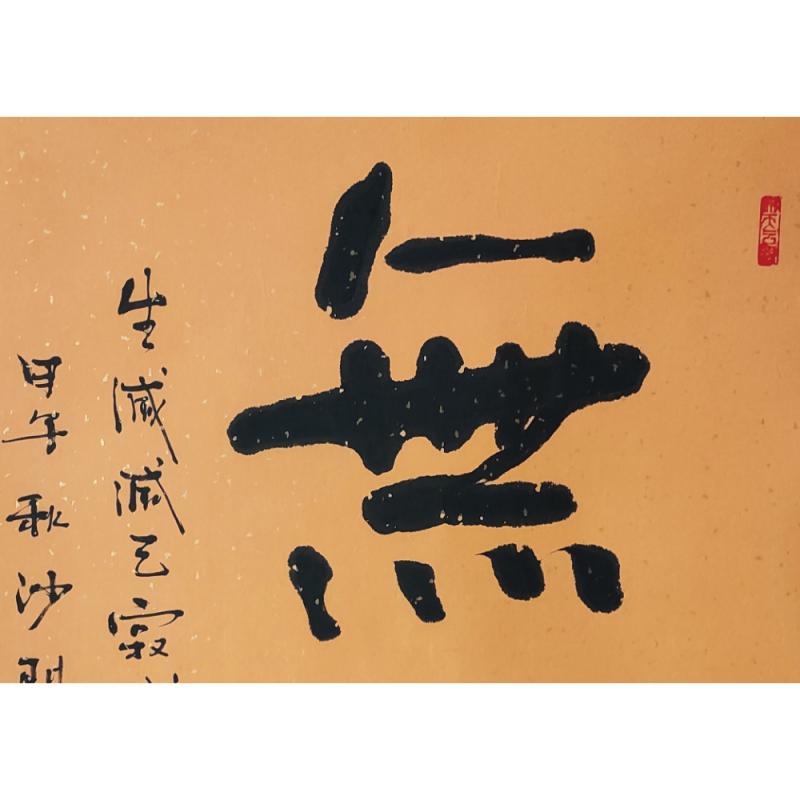 無
生滅滅已寂
甲午秋沙